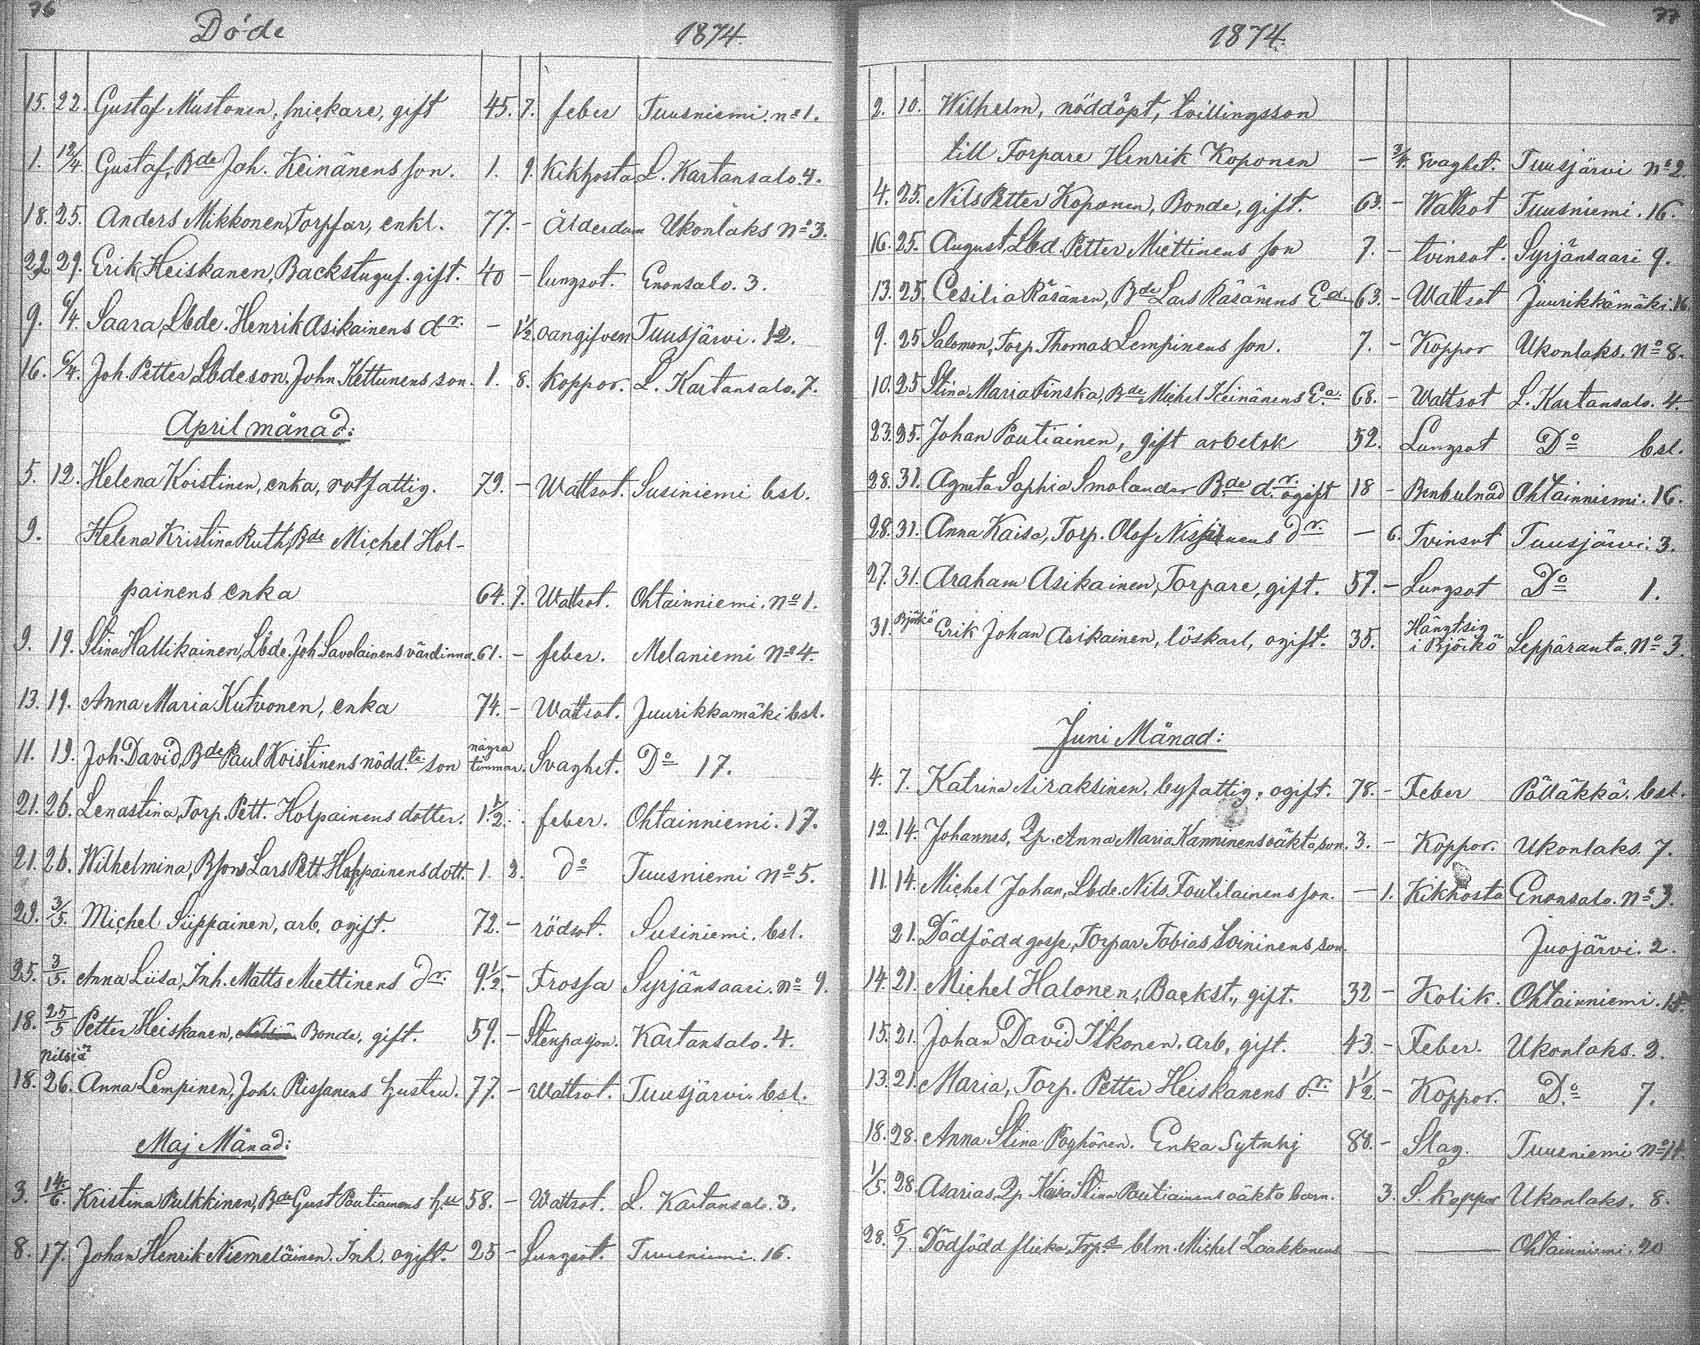 76
Döde 1874.
15. 22. Gustaf Mustonen, snickare, gift 45. 7. feber Tuusniemi. no 1.
1. 12/4 Gustaf, Bde Joh. Keinänens son. 1. 9. Kikhosta L. Kartansalo. 4.
18. 25. Anders Mikkonen, Torpar, enkl. 77. - Ålderdom Ukonlaks No 3.
22. 29. Erik Heiskanen, Backstuguf. gift. 40 - lungsot. Enonsalo. 3.
9. 6/4. Saara, Lbde. Henrik Asikainens dr. - 1½. oangifven Tuusjärvi. 12.
16. 6/4. Joh. Petter Lbdeson. John Kettunens son. 1. 8. Koppor. L. Kartansalo. 7.
April månad:
5. 12. Helena Koistinen, enka, rotfattig. 79. - Wattsot. Susiniemi bsl.
9. Helena Kristina Ruth, Bde Michel Hol-
painens enka 64. 7. Wattsot. Ohtainniemi. No 1.
9. 19. Stina Hallikainen, Lbde. Joh. Savolainens värdinna. 61. - feber. Melaniemi No 4.
13. 19. Anna Maria Kutvonen, enka 74. - Wattsot. Juurikkamäki bsl.
11. 19. Joh. David, Bde Paul Koistinens nödd.te son några timmar. Svaghet. Do 17.
21. 26. Lenastina, Torp. Pett. Holpainens dotter. 1½. feber. Ohtainniemi. 17.
21. 26. Wilhelmina, Lars Pett. Hoppainens dott. 1. 3. do Tuusniemi No 5.
29. 3/5. Michel Siippainen, arb, ogift. 72. - rödsot. Susiniemi. bsl.
25. 3/5. Anna Liisa, Inh. Matts Miettinens dr. 9½. - Frossa Syrjänsaari. No 9.
18. 25/5 Petter Heiskanen, Bonde, gift. 59. - Stenpasjon. Kartansalo. 4.
Nilsiä
18. 26. Anna Lempinen, Joh. Rissanens hustru. 77. - Wattsot. Tuusjärvi. bsl.
Maj Månad:
3. 14/6. Kristina Pulkkinen, Bde Gust Poutiainens h.u 58. - Wattsot. L. Kartansalo. 3.
8. 17. Johan Henrik Niemeläinen. Inh. ogift. 25 - Lungsot. Tuusniemi. 16.
77
1874.
2. 10. Wilhelm, nöddöpt, tvillingsson
till Torpare Henrik Koponen - 3/4. Svaghet. Tuusjärvi No 2.
4. 25. Nils Petter Koponen, Bonde, gift. 63. - Wattsot Tuusniemi. 16.
16. 25. August, Lbd. Petter Miettinens son 7. - tvinsot. Syrjänsaari 9.
13. 25. Cesilia Räsänen, Bde Lars Räsänens Ea 63. - Wattsot Juurikkamäki. 16.
9. 25 Salomon, Torp. Thomas Lempinens son. 7. - Koppor Ukonlaks. No 8.
10. 25 Stina Maria Finska, Bde Michel Keinänens Ea. 68. - Wattsot L. Kartansalo. 4.
23. 25. Johan Poutiainen, gift arbetsk 52. Lungsot Do bsl.
28. 31. Agneta Sophia Smolander Bde dr. ogift 18 - Benbulnad Ohtainniemi. 16.
28. 31. Anna Kaisa, Torp. Olof Nissinens dr. - 6. Tvinsot Tuusjärvi. 3.
27. 31. Araham Asikainen, Torpare, gift. 57. - Lungsot Do 1.
31. Björkö Erik Johan Asikainen, löskarl, ogift. 35. Hängt sig i Björkö Leppäranta. No 3.
Juni Månad:
4. 7. Katrina Airaksinen, byfattig, ogift. 78. - Feber Pälläkkä. bsl.
12. 14. Johannes, Qp. Anna Maria Kanninens oäkta son. 3. - Koppor. Ukonlaks. 7.
11. 14. Michel Johan, Lbde. Nils Toutilainens son. - 1. Kikhosta Enonsalo. No 3.
21. Dödfödd gosse, Torpar Tobias Soininens son. Juojärvi. 2.
14. 21. Michel Halonen, Backst., gift. 32 - Kolik. Ohtainniemi. 15.
15. 21. Johan David Itkonen. arb, gift. 43. - Feber. Ukonlaks. 2.
13. 21. Maria, Torp. Petter Heiskanens dr. 1½. - Koppor. Do 7.
18. 28. Anna Stina Pöyhönen. Enka Sytnhj 88. - Slag. Tuusniemi No 11.
1/5. 28. Asarias, Qp. Kaisa Stina Poutiainens oäkta barn. 3. S. koppor Ukonlaks. 8.
28. 5/7. Dödfödd flicka, blm. Michel Laakkonens — — Ohtainniemi. 20